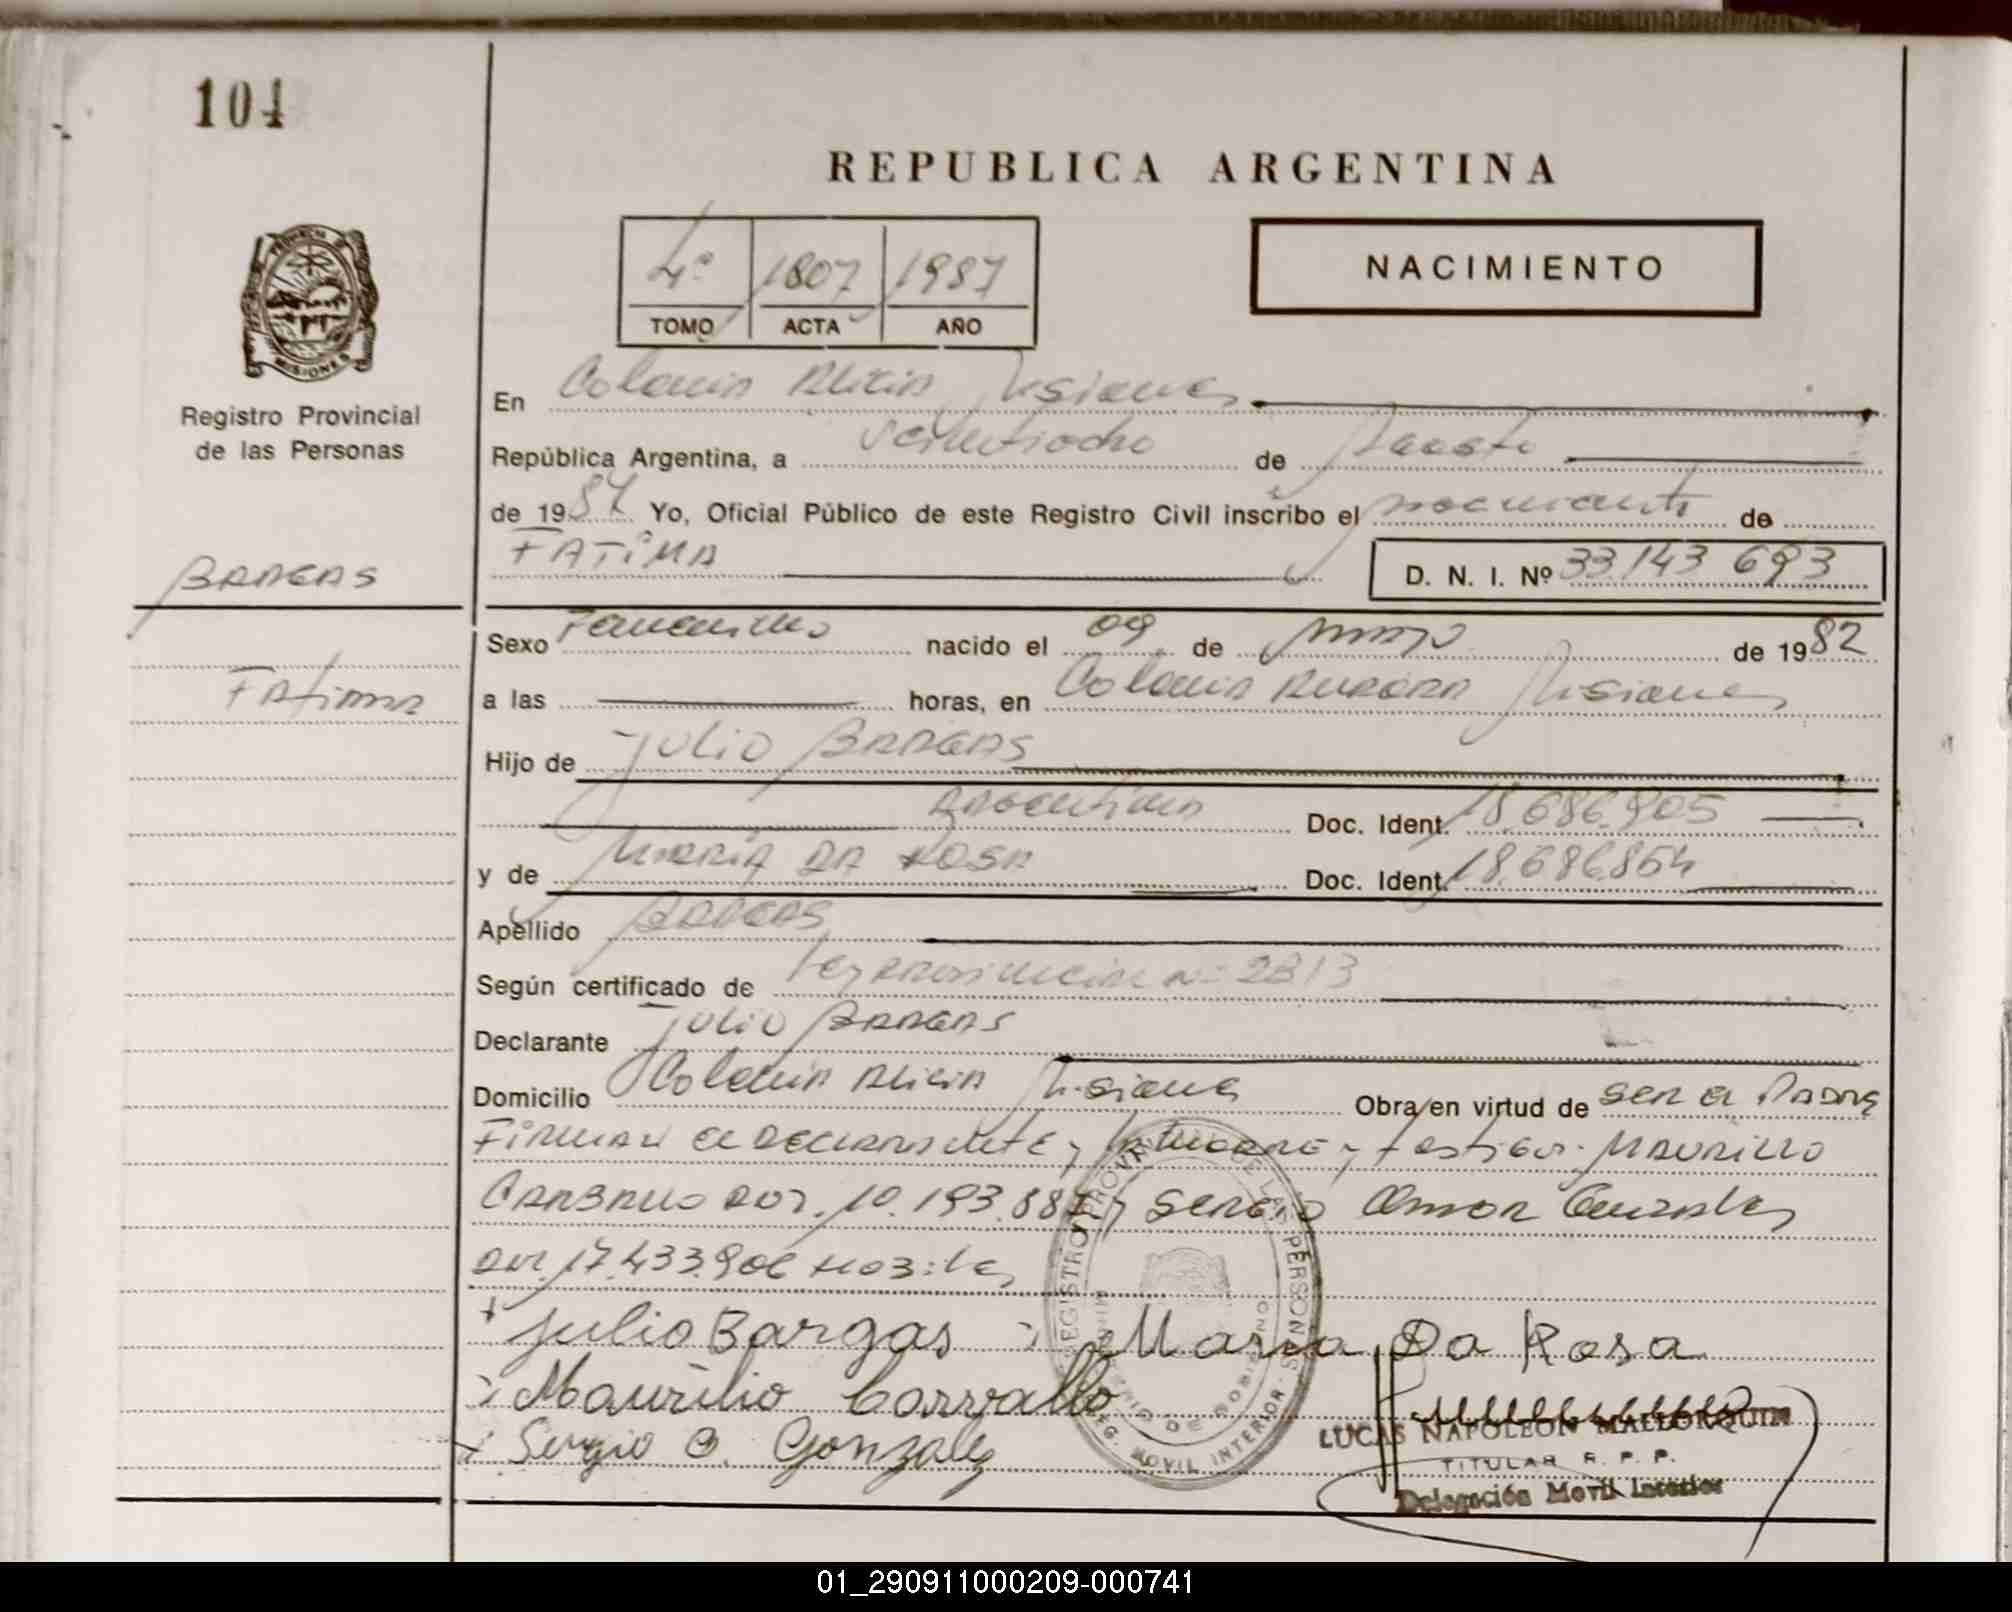 104
REPUBLICA ARGENTINA
4º 1807 1987
TOMO ACTA AÑO
NACIMIENTO
PROVINCIA DE MISIONES
Registro Provincial
de las Personas
En Colonia Alicia Misiones
República Argentina, a veintiocho de Agosto
de 1987 Yo, Oficial Público de este Registro Civil inscribo el nacimiento de
FATIMA
D. N. I. Nº 33 143 693
BARGAS
Fatima
Sexo Femenino nacido el 09 de mayo de 1982
a las horas, en Colonia Aurora Misiones
Hijo de Julio BARGAS
Argentina Doc. Ident. 18.686.905
y de MARIA DA ROSA Doc. Ident. 18.686.854
Apellido BARGAS
Según certificado de Ley Nº 2813
Declarante Julio BARGAS
Domicilio Colonia Alicia Misiones Obra en virtud de ser el Padre
Firman el declarante y la madre y testigos. MAURILIO
CARBALLO DNI. 10.193.88 y Sergio Omar Gonzalez
DNI. 17.433.906
Julio Bargas Maria Da Rosa
Maurilio Carvallo
Sergio O. Gonzalez
REGISTRO PROVINCIAL DE LAS PERSONAS
MINISTERIO DE GOBIERNO
DELEG. MOVIL INTERIOR
LUCAS NAPOLEON MALLORQUIN
TITULAR R. P. P.
Delegación Movil Interior
01_290911000209-000741